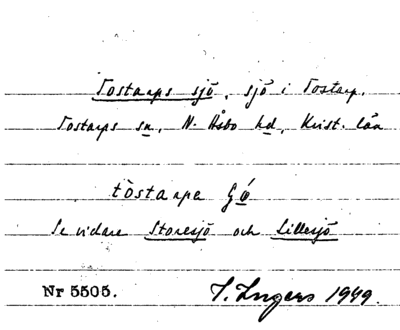 Tostarps sjö, sjö i Tostarp,
Tostarps sn, N. Åsbo hd, Krist. län
tòstarpa
Se vidare Storesjö och Lillesjö
Nr 5505. I. Ingers 1949.